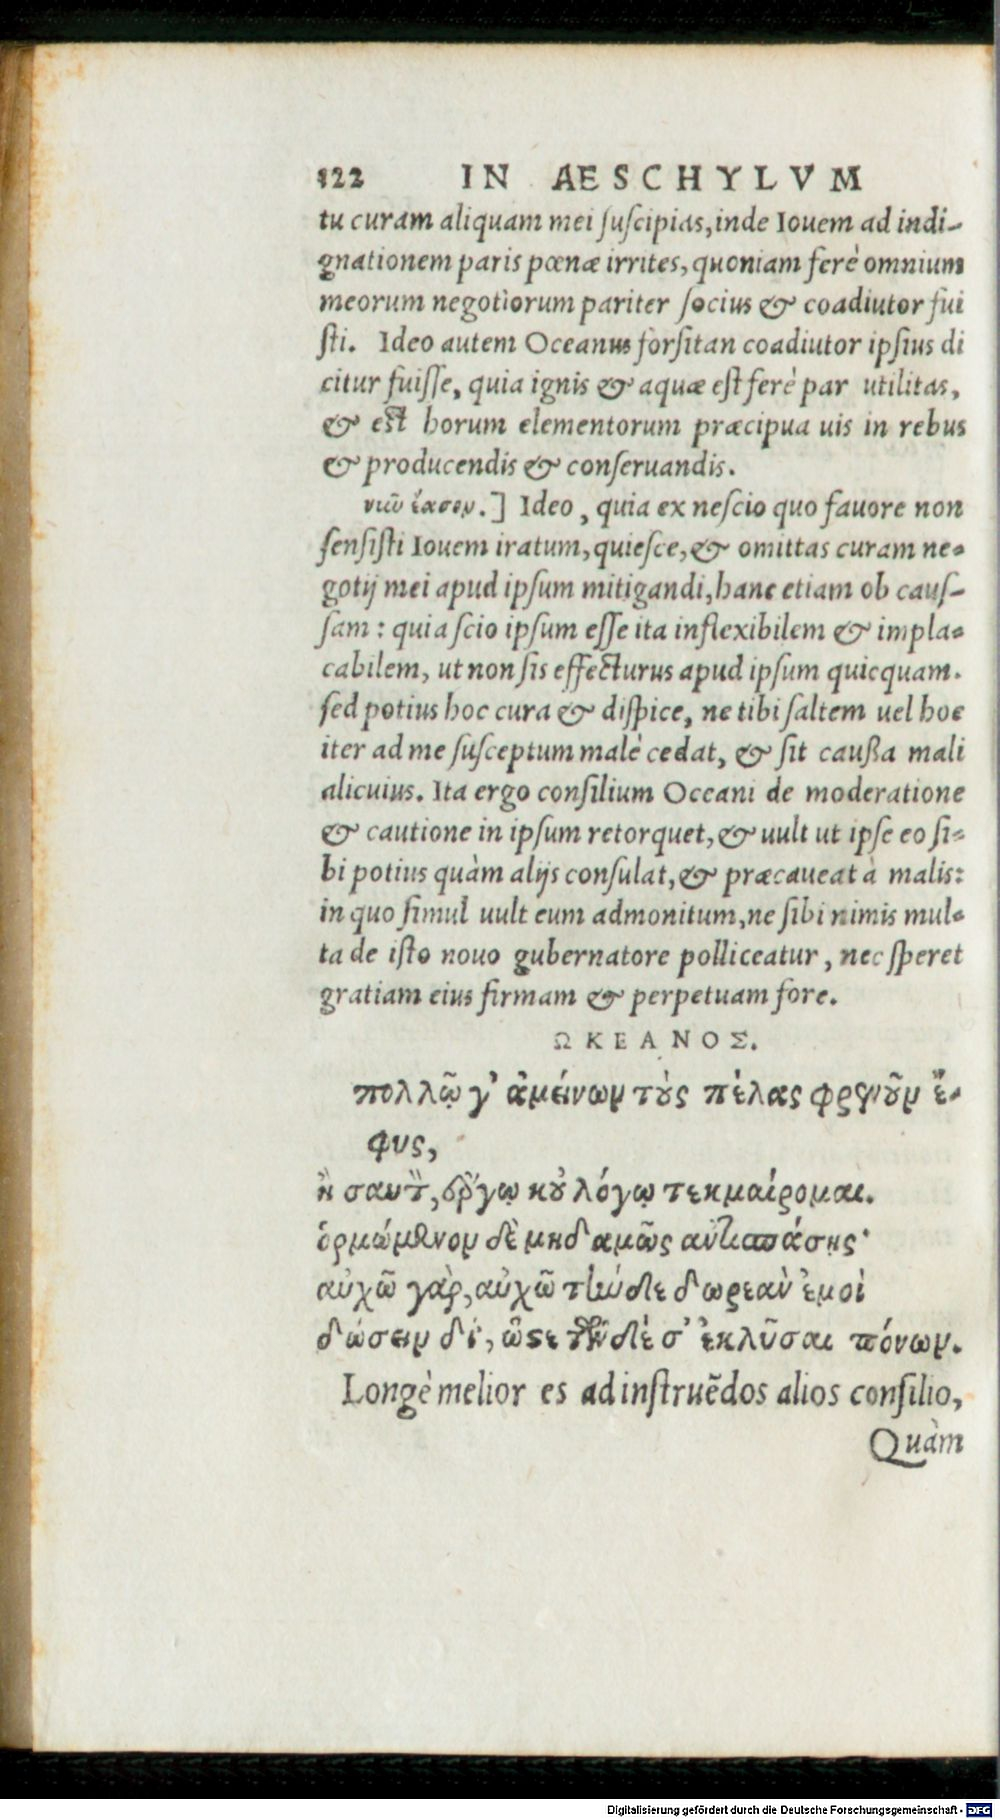 122 IN AESCHYLVM
tu curam aliquam mei ſuſcipias, inde Iouem ad indi-
gnationem paris pœnæ irrites, quoniam ferè omnium
meorum negotiorum pariter ſocius & coadiutor fui
ſti. Ideo autem Oceanus forſitan coadiutor ipſius di
citur fuiſſe, quia ignis & aquæ eſt ferè par utilitas,
& eſt horum elementorum præcipua uis in rebus
& producendis & conſeruandis.
νιῦ ἔασον.] Ideo, quia ex neſcio quo fauore non
ſenſiſti Iouem iratum, quieſce, & omittas curam ne-
gotij mei apud ipſum mitigandi, hanc etiam ob cauſ-
ſam: quia ſcio ipſum eſſe ita inflexibilem & impla-
cabilem, ut non ſis effecturus apud ipſum quicquam.
ſed potius hoc cura & diſpice, ne tibi ſaltem uel hoc
iter ad me ſuſceptum malè cedat, & ſit cauſſa mali
alicuius. Ita ergo conſilium Oceani de moderatione
& cautione in ipſum retorquet, & uult ut ipſe eo ſi-
bi potius quàm alijs conſulat, & præcaueat à malis:
in quo ſimul uult eum admonitum, ne ſibi nimis mul-
ta de iſto nouo gubernatore polliceatur, nec ſperet
gratiam eius firmam & perpetuam fore.
ΩΚΕΑΝΟΣ.
πολλῷ γ' ἀμείνων τοὺς πέλας φρενοῦν ἔ-
φυς,
ἢ σαυτὸν, ἔργῳ κοὐ λόγῳ τεκμαίρομαι.
ὁρμώμενον δὲ μηδαμῶς ἀντισπάσῃς·
αὐχῶ γὰρ, αὐχῶ τήνδε δωρεὰν ἐμοὶ
δώσειν δί', ὥστε τῶνδέ σ' ἐκλῦσαι πόνων.
Longè melior es ad inſtruēdos alios conſilio,
Quàm
Digitalisierung gefördert durch die Deutsche Forschungsgemeinschaft - DFG